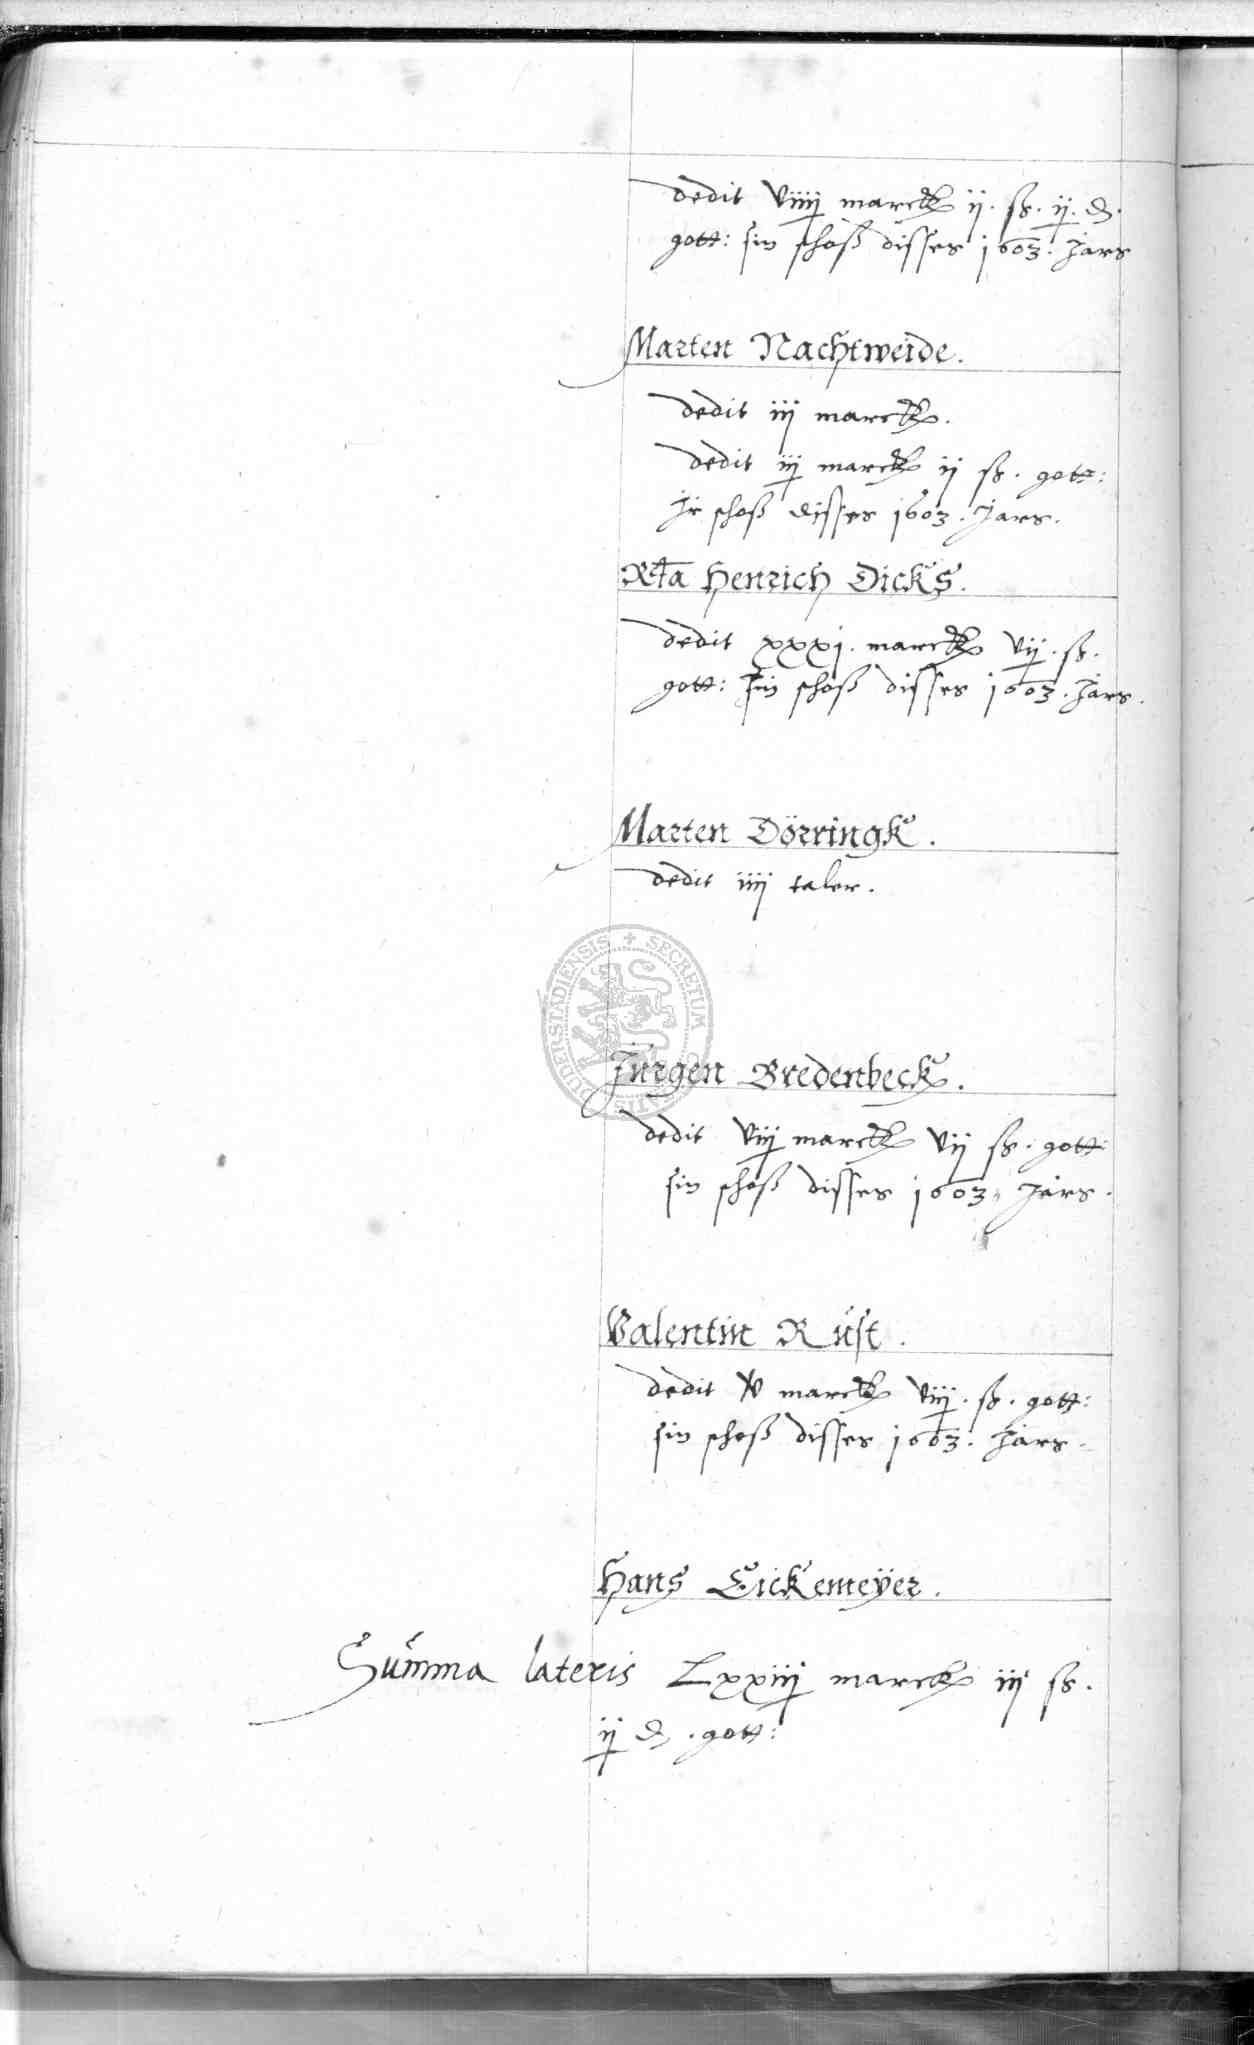 dedit viiij marck ij. ß. ij. d.
gott: sin schoß disses 1603. Jars
Marten Nachtweide.
dedit iij marck.
dedit iij marck ij ß. gott:
Jr schoß disses 1603. Jars.
Rta Henrich Dicks.
dedit xxxj. marck vij. ß.
gott: sin schoß disses 1603. Jars.
Marten Dörringk.
dedit iiij taler.
SECRETUM
DUDERSTADIENSIS
Jürgen Bredenbeck.
dedit viij marck vij ß. gott:
sin schoß disses 1603. Jars.
Valentin Rust.
dedit xv marck viij. ß. gott:
sin schoß disses 1603. Jars.
Hans Eickemeÿer.
Summa lateris Lxxiij marck iij ß.
ij d. gott: